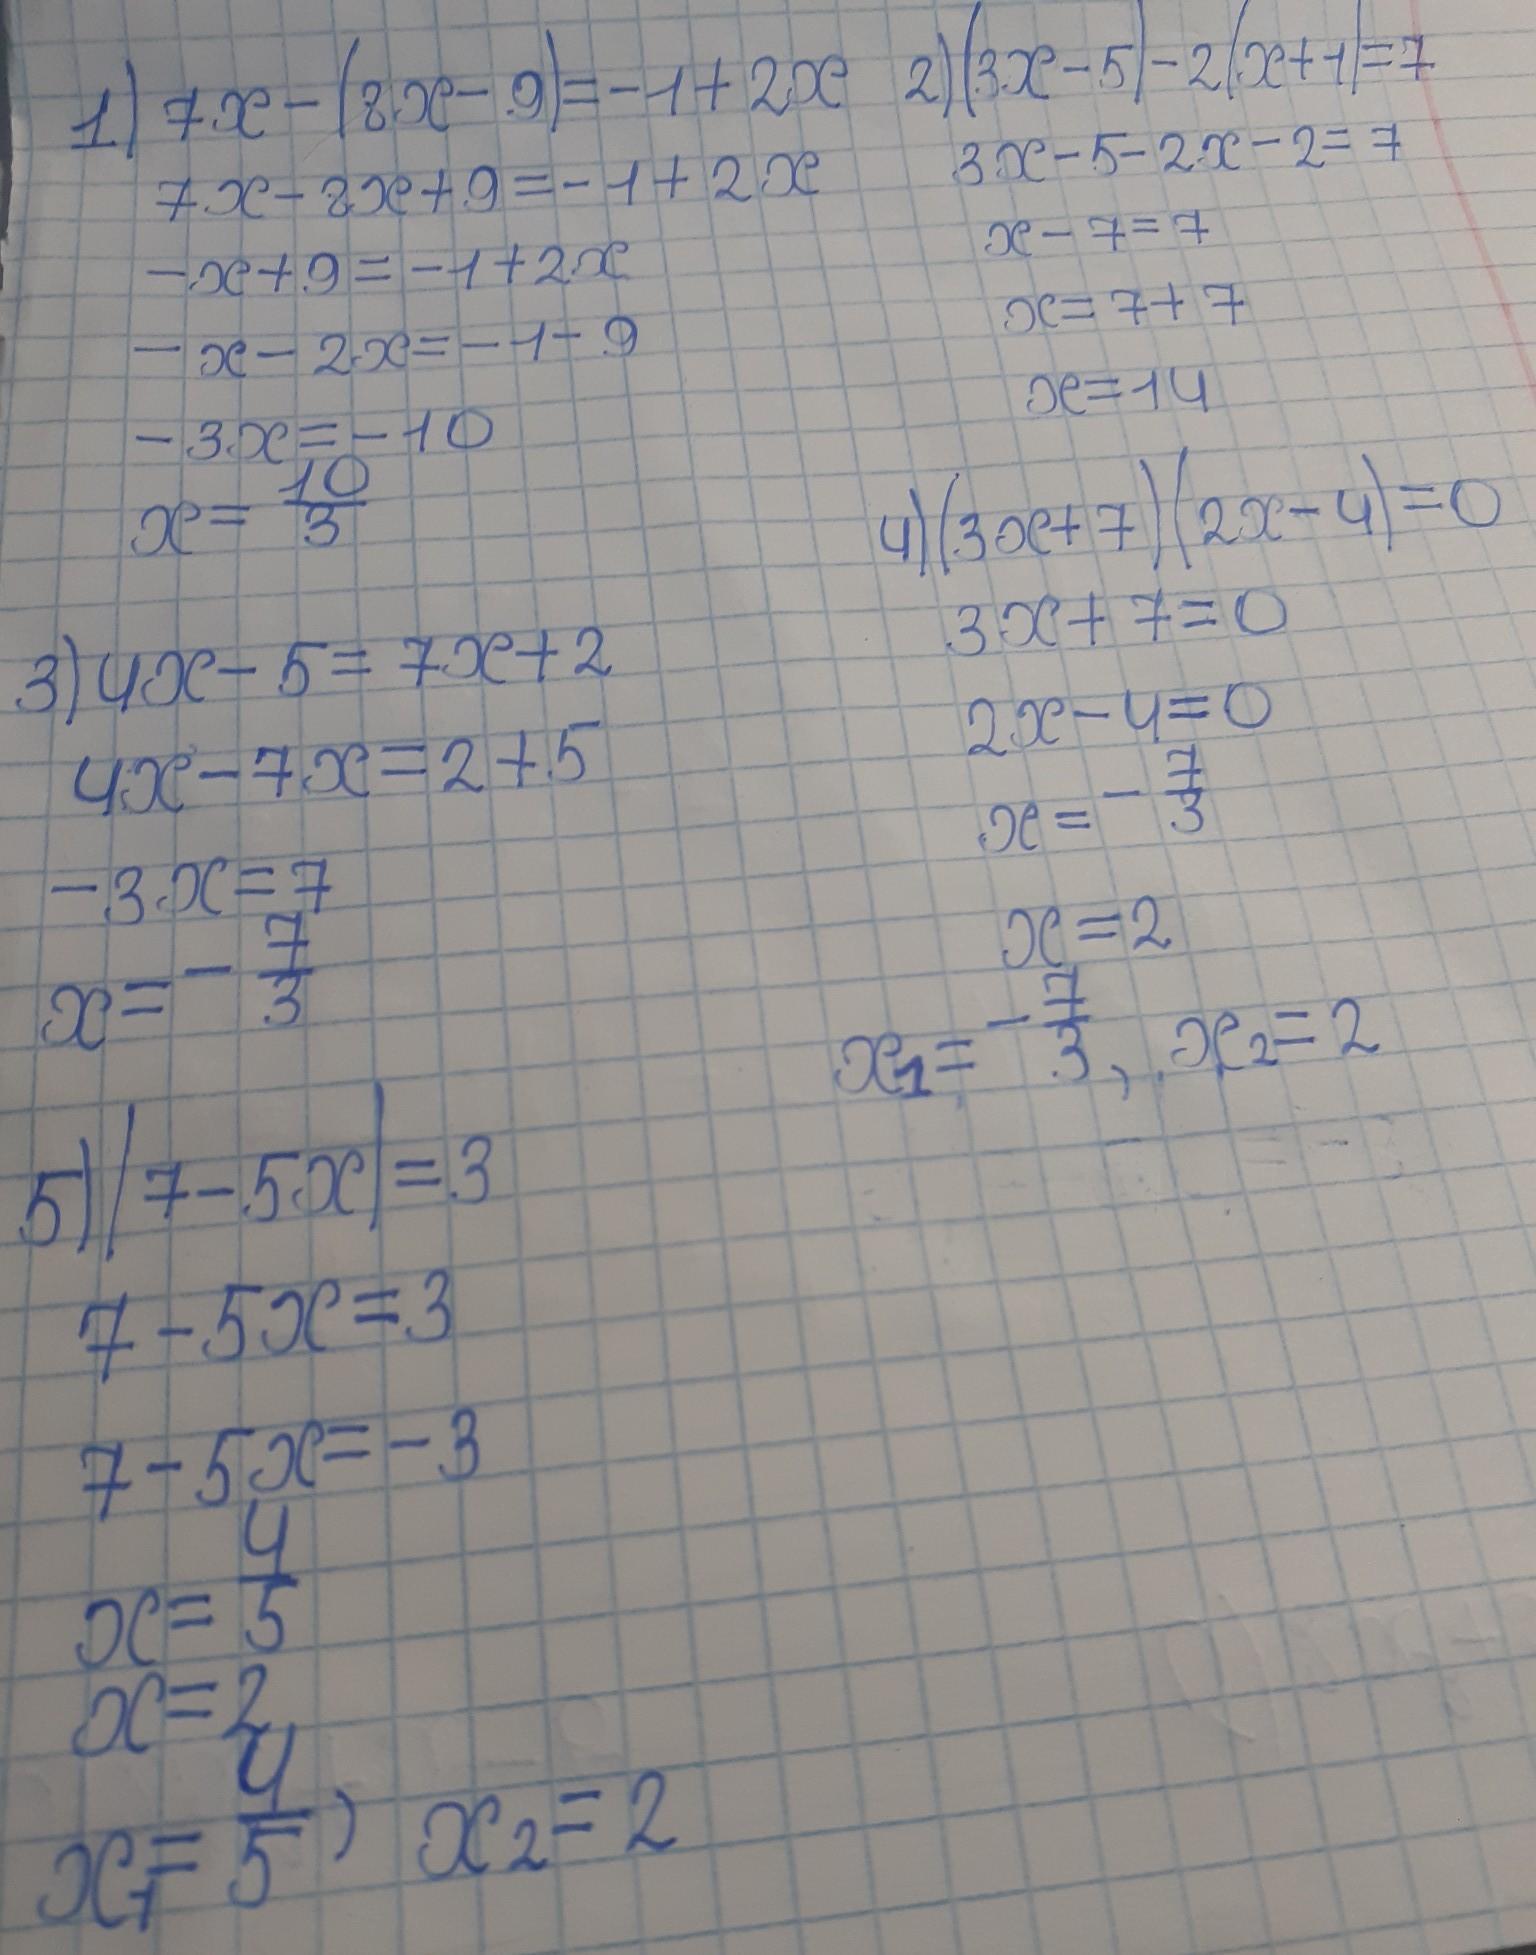 1) 7x-(8x-9)=-1+2x
7x-8x+9=-1+2x
-x+9=-1+2x
-x-2x=-1-9
-3x=-10
x=10/3
2) (3x-5)-2(x+1)=7
3x-5-2x-2=7
x-7=7
x=7+7
x=14
3) 4x-5=7x+2
4x-7x=2+5
-3x=7
x=-7/3
4) (3x+7)(2x-4)=0
3x+7=0
2x-4=0
x=-7/3
x=2
x₁=-7/3, x₂=2
5) |7-5x|=3
7-5x=3
7-5x=-3
x=4/5
x=2
x₁=4/5, x₂=2